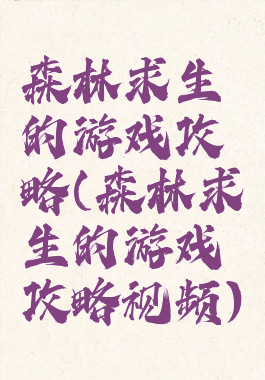 森林求生
的游戏攻
略(森林求
生的游戏
攻略视频)